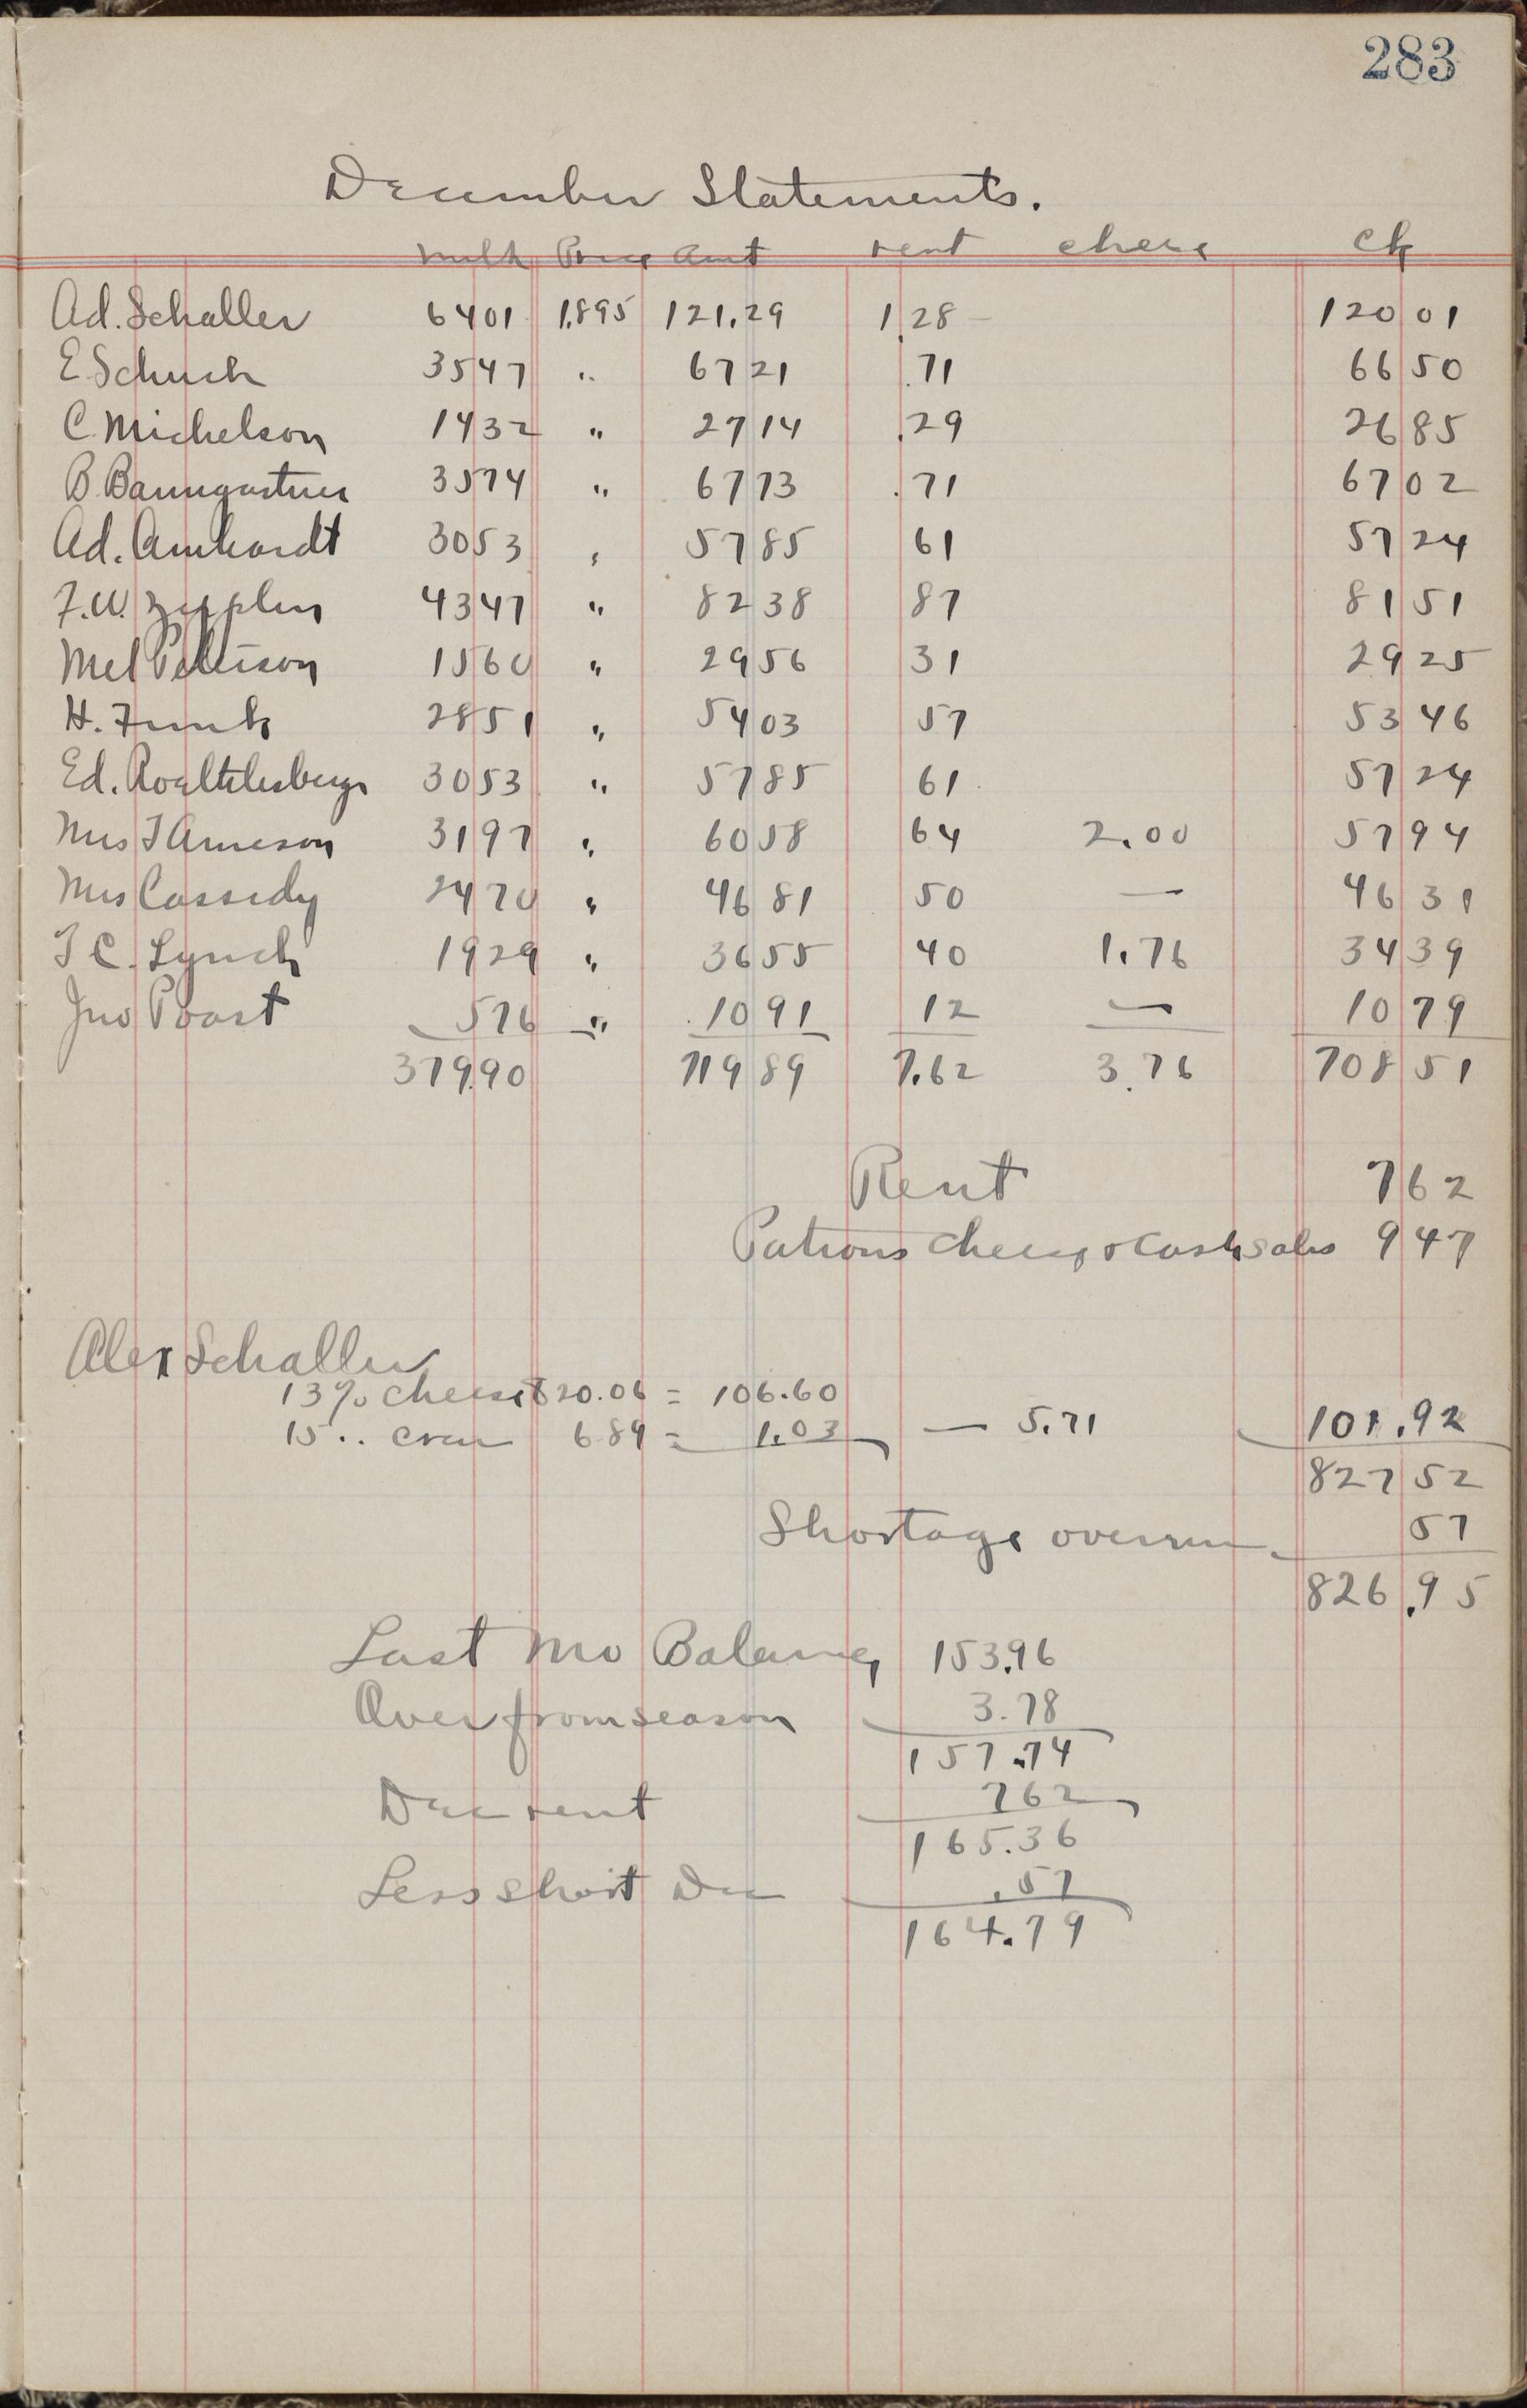 283
December Statements.
milk Price amt rent cheese ck
Ad. Schaller 6401 1.895 121.29 1.28 120 01
E. Schuch 3547 " 67 21 .71 66 50
C. Michelson 1432 " 27 14 .29 26 85
B. Baumgartner 3574 " 67 73 .71 67 02
Ad. Amhardt 3053 " 57 85 61 57 24
F.W. Zepplin 4347 " 82 38 87 81 51
Mel Peterson 1560 " 29 56 31 29 25
H. Funk 2851 " 54 03 57 53 46
Ed. Roethlisberger 3053 " 57 85 61 57 24
Mrs T Arneson 3197 " 60 58 64 2.00 57 94
Mrs Cassidy 2470 " 46 81 50 — 46 31
T C. Lynch 1929 " 36 55 40 1.76 34 39
Jno Poast 576 " 10 91 12 — 10 79
379.90 719 89 7.62 3.76 708 51
Rent 7 62
Patrons Cheese & Cash sales 9 47
Alex Schaller
13% cheese 820.06 = 106.60
15 " cream 6 89 = 1.03 — 5.71 101.92
827 52
Shortage overrun 57
826.95
Last Mo Balance 153.96
Over from season 3.78
157.74
Dec rent 7 62
165.36
Less short Dec .57
164.79